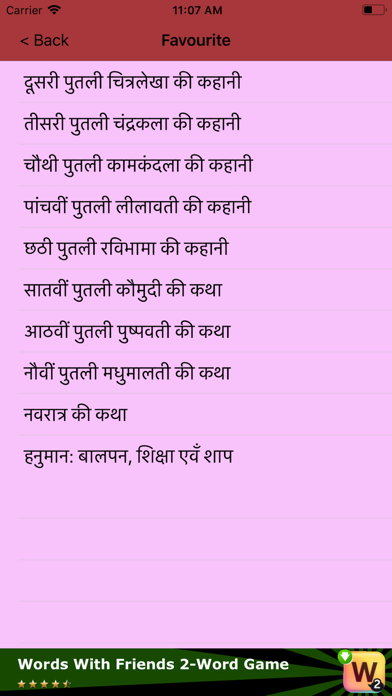 Carrier 11:07 AM
< Back Favourite
दूसरी पुतली चित्रलेखा की कहानी
तीसरी पुतली चंद्रकला की कहानी
चौथी पुतली कामकंदला की कहानी
पांचवीं पुतली लीलावती की कहानी
छठी पुतली रविभामा की कहानी
सातवीं पुतली कौमुदी की कथा
आठवीं पुतली पुष्पवती की कथा
नौवीं पुतली मधुमालती की कथा
नवरात्र की कथा
हनुमान: बालपन, शिक्षा एवँ शाप
Words With Friends 2-Word Game
W 2